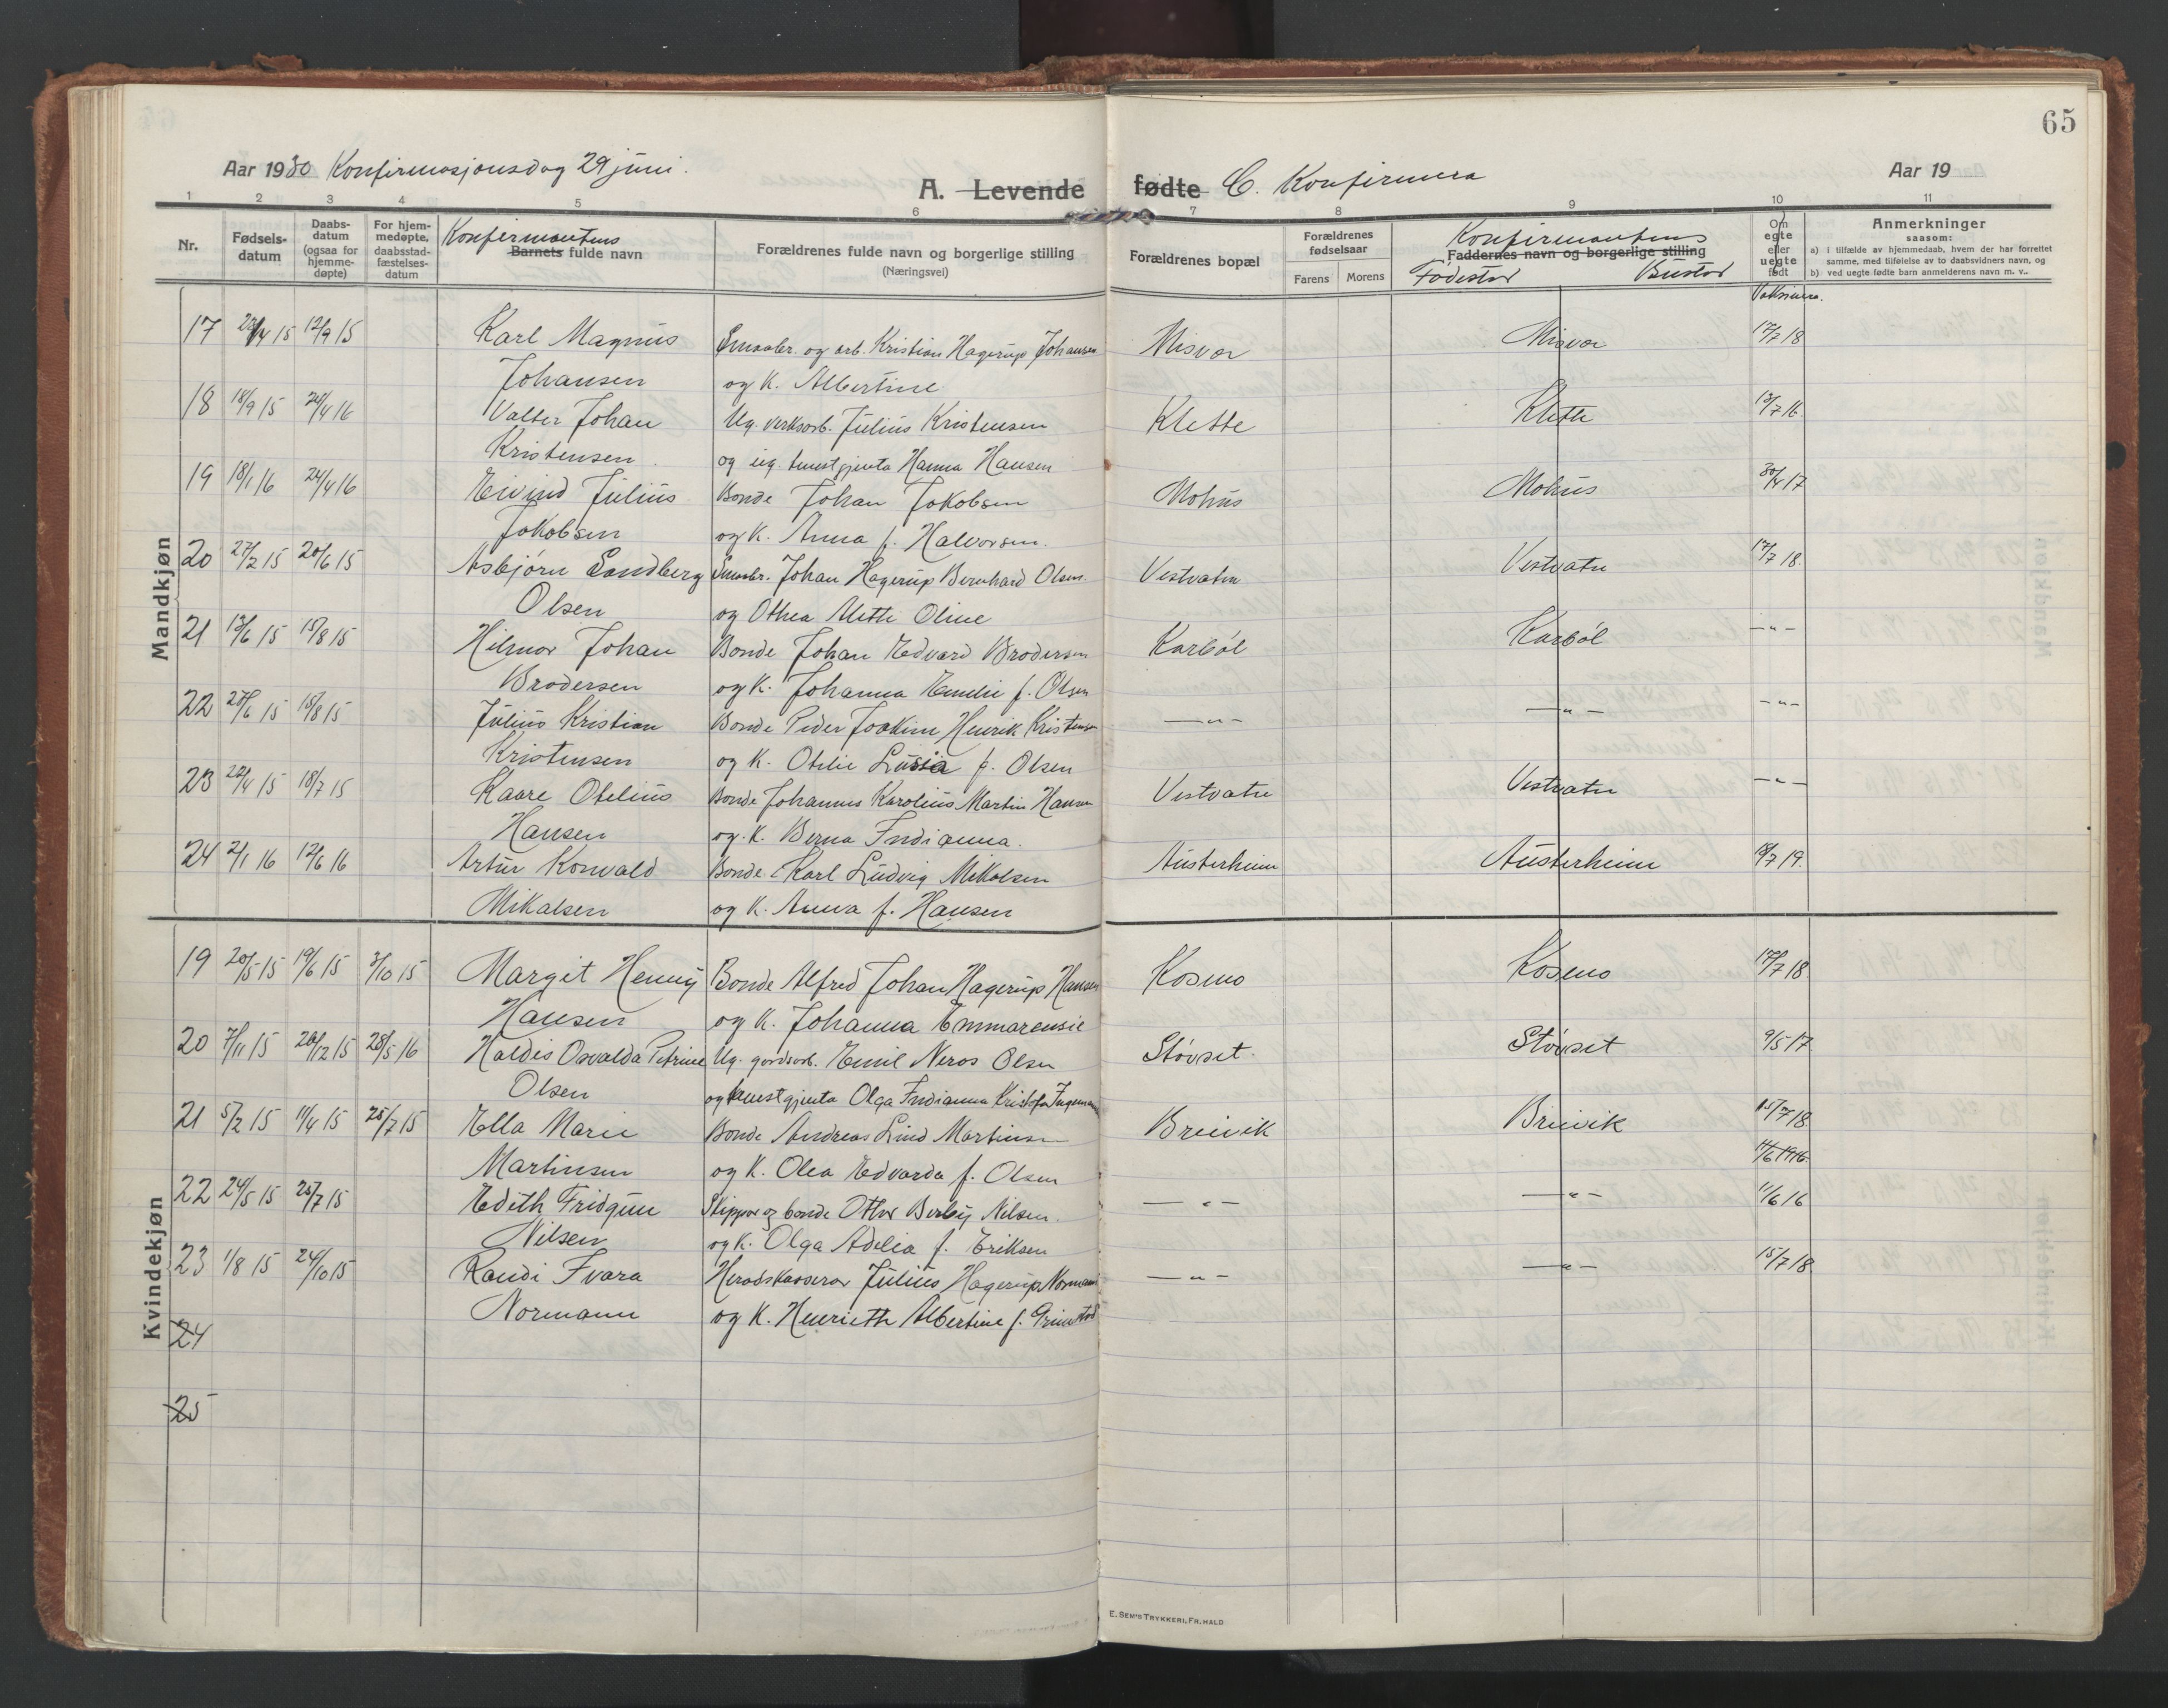 65
Aar 1930 Konfirmasjonsdag 29 juni.
A. Levende fødte C. Konfirmera
Aar 19
1 2 3 4 5 6 7 8 9 10 11
Nr.
Fødsels-
datum
Daabs-
datum
(ogsaa for
hjemme-
døpte)
For hjem-
medøpte,
daabsstad-
fæstelses-
datum
Konfirmantens
Barnets fulde navn
Forældrenes fulde navn og borgerlige stilling
(Næringsvei)
Forældrenes bopæl
Forældrenes
fødselsaar
Farens Morens
Konfirmantens
Faddernes navn og borgerlige stilling
Fødestad Bustad
Om
egte
eller
uegte
født
Vaksinera.
Anmerkninger
saasom:
a) i tilfælde av hjemmedaab, hvem der har forrettet
samme, med tilføielse av to daabsvidners navn, og
b) ved uegte fødte barn anmelderens navn m. v..
Mandkjøn
17 22/4 15 12/9 15 Karl Magnus Smaabr. og arb. Kristian Hagerup Johansen Misvær Misvær 17/7 18
Johansen og k. Albertine
18 18/9 15 24/4 16 Valter Johan Ug. verksarb. Julius Kristensen Klette Klette 13/7 16
Kristensen og ug. tenestgjenta Hanna Hansen
19 18/1 16 24/4 16 Eivind Julius Bonde Johan Jakobsen Mohus Mohus 30/4 17
Jakobsen og k. Anna f. Halvorsen.
20 27/2 15 20/6 15 Asbjørn Sandberg Smaabr. Johan Hagerup Bernhard Olsen. Vestvatn Vestvatn 17/7 18.
Olsen og Othea Mette Oline
21 13/6 15 15/8 15 Hilmar Johan Bonde Johan Edvard Brodersen Karbøl Karbøl —"—
Brodersen og k. Johanna Emelie f. Olsen
22 28/6 15 15/8 15 Julius Kristian Bonde Peder Joakim Henrik Kristensen —"— —"— —"—
Kristensen og k. Otelie Lusia f. Olsen
23 22/4 15 18/7 15 Kaare Otelius Bonde Johannes Karolius Martin Hansen Vestvatn Vestvatn —"—
Hansen og. k. Berna Indianna.
24 2/1 16 12/6 16 Artur Konvald Bonde Karl Ludvig Mikalsen Austerheim Austerheim 18/7 19.
Mikalsen og k. Anna f. Hansen
Kvindekjøn
19 20/5 15 19/6 15 3/10 15 Margit Henny Bonde Alfred Johan Hagerup Hansen Kosmo Kosmo 17/7 18
Hansen og k. Johanna Emmarensie
20 7/11 15 26/12 15 28/5 16 Haldis Osvalda Petrine Ug. gardsarb. Emil Neros Olsen Støvset. Støvset 9/5 17
Olsen og tenestgjenta Olga Indianna
21 5/2 15 11/4 15 25/7 15 Ella Marie Bonde Andreas Lind Martinsen Breivik Breivik 15/7 18
Martinsen og k. Olea Edvarda f. Olsen 11/6 1916.
22 24/5 15 25/7 15 Edith Fridgun Skippar og bonde Othar Berby Nilsen. —"— —"— 11/6 16
Nilsen og k. Olga Adelia f. Eriksen
23 1/8 15 24/10 15 Randi Ivara Heradskasserar Julius Hagerup Normann —"— —"— 15/7 18
Normann og k. Henriette Albertine f. Grimstad
24
25
E. SEM'S TRYKKERI, FR. HALD